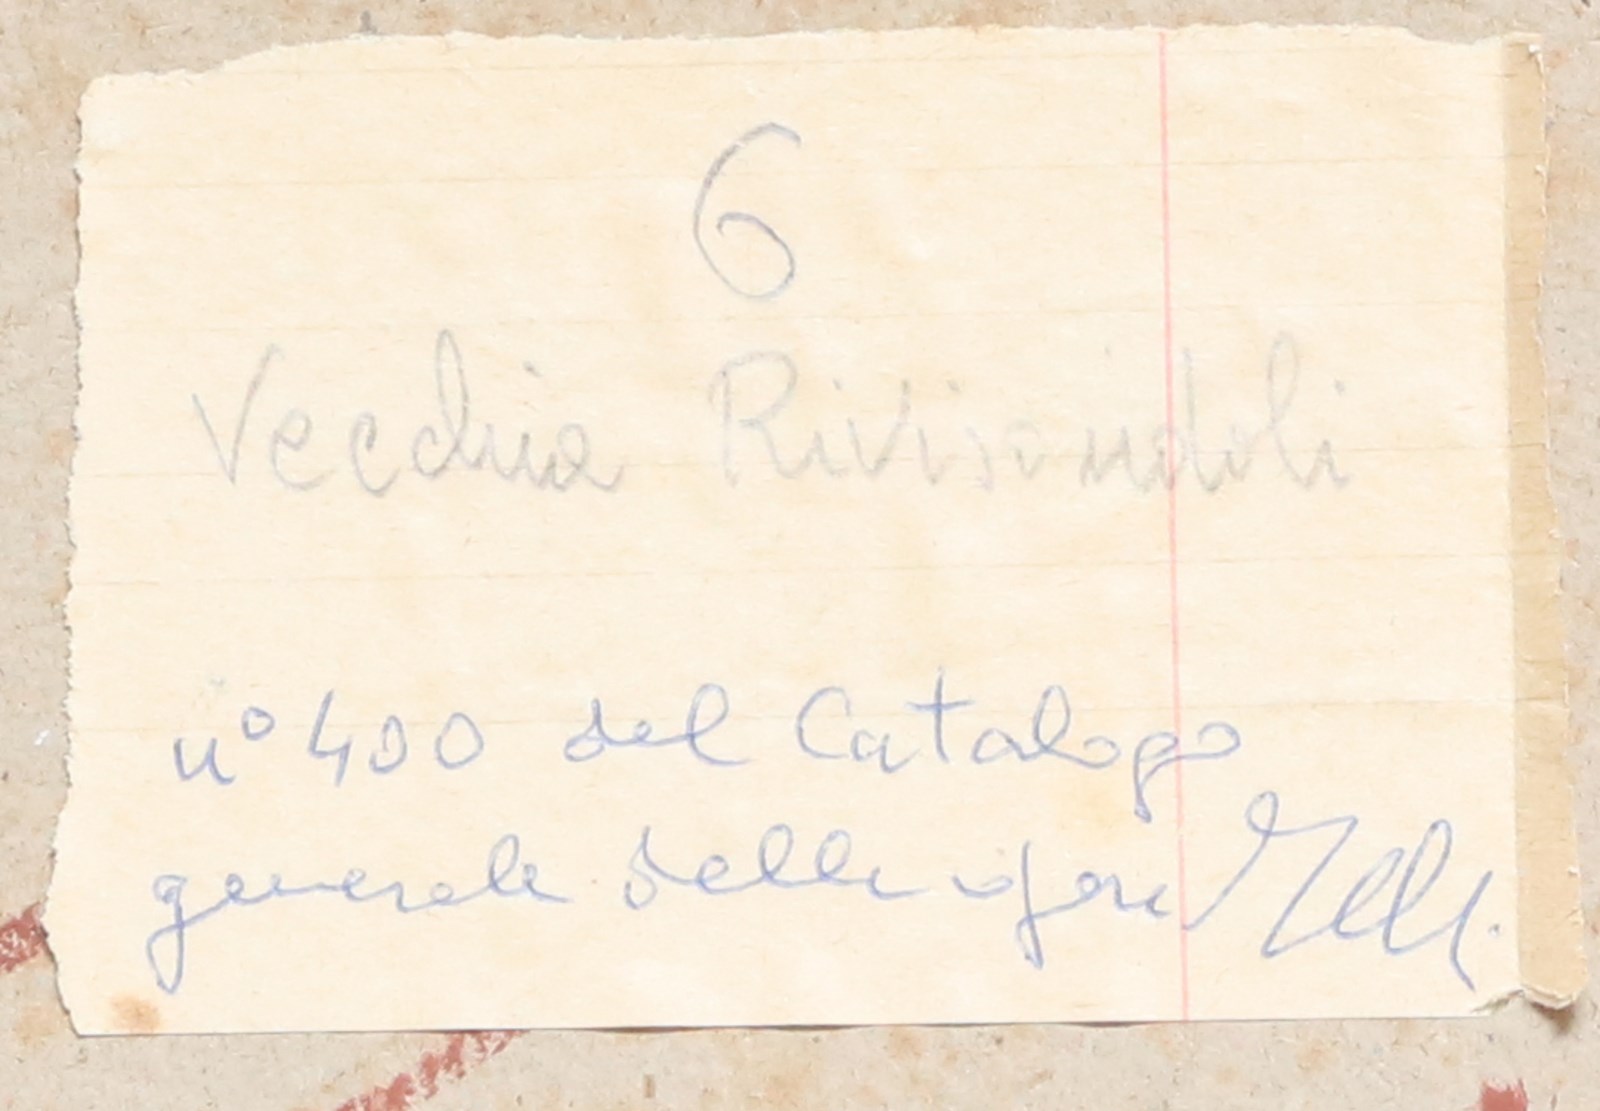 6
Vecchia Rivisondoli
n° 400 del Catalogo
generale delle opere